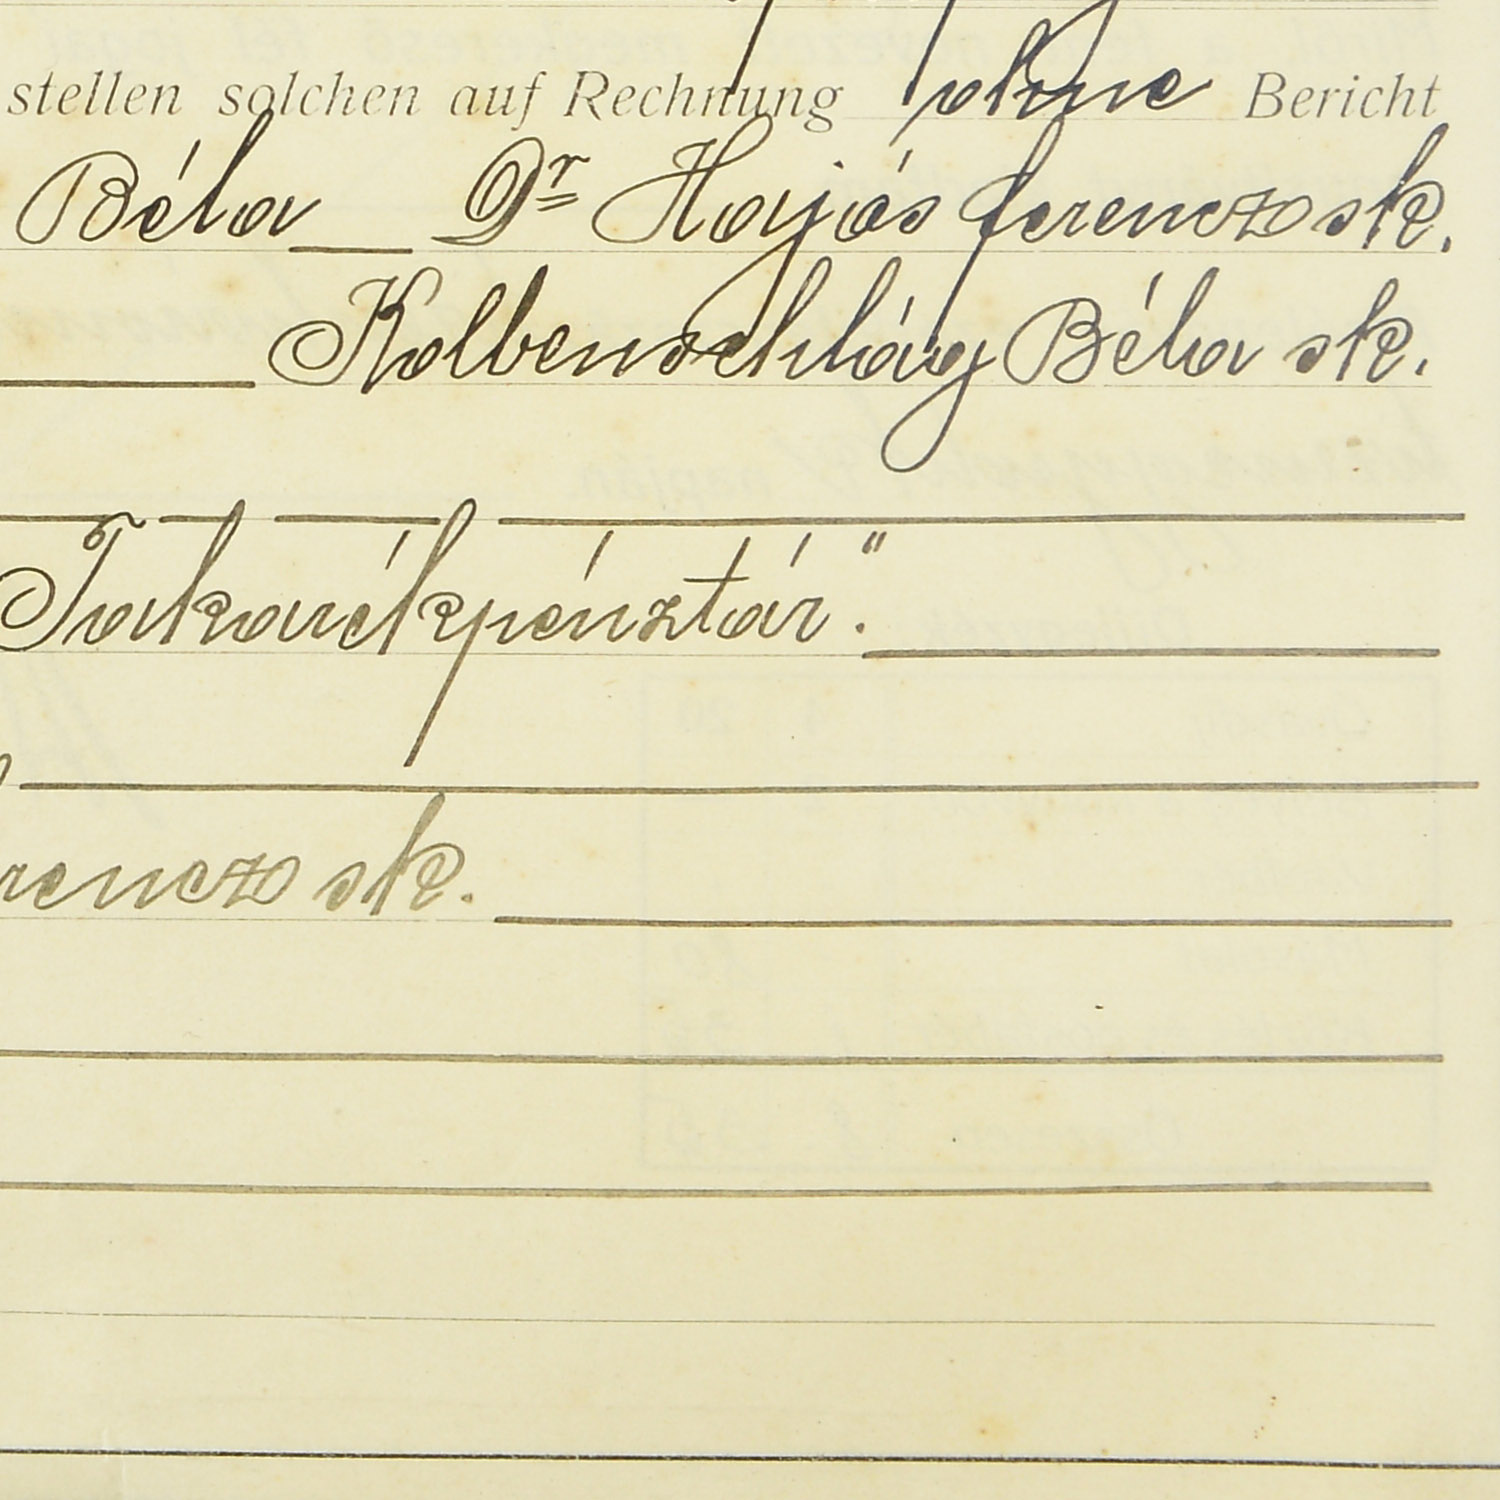 stellen solchen auf Rechnung ohne Bericht
Béla — Dr Hajós Ferencz sk.
Kolbenschlág Béla sk.
Takarékpénztár."
rencz sk.